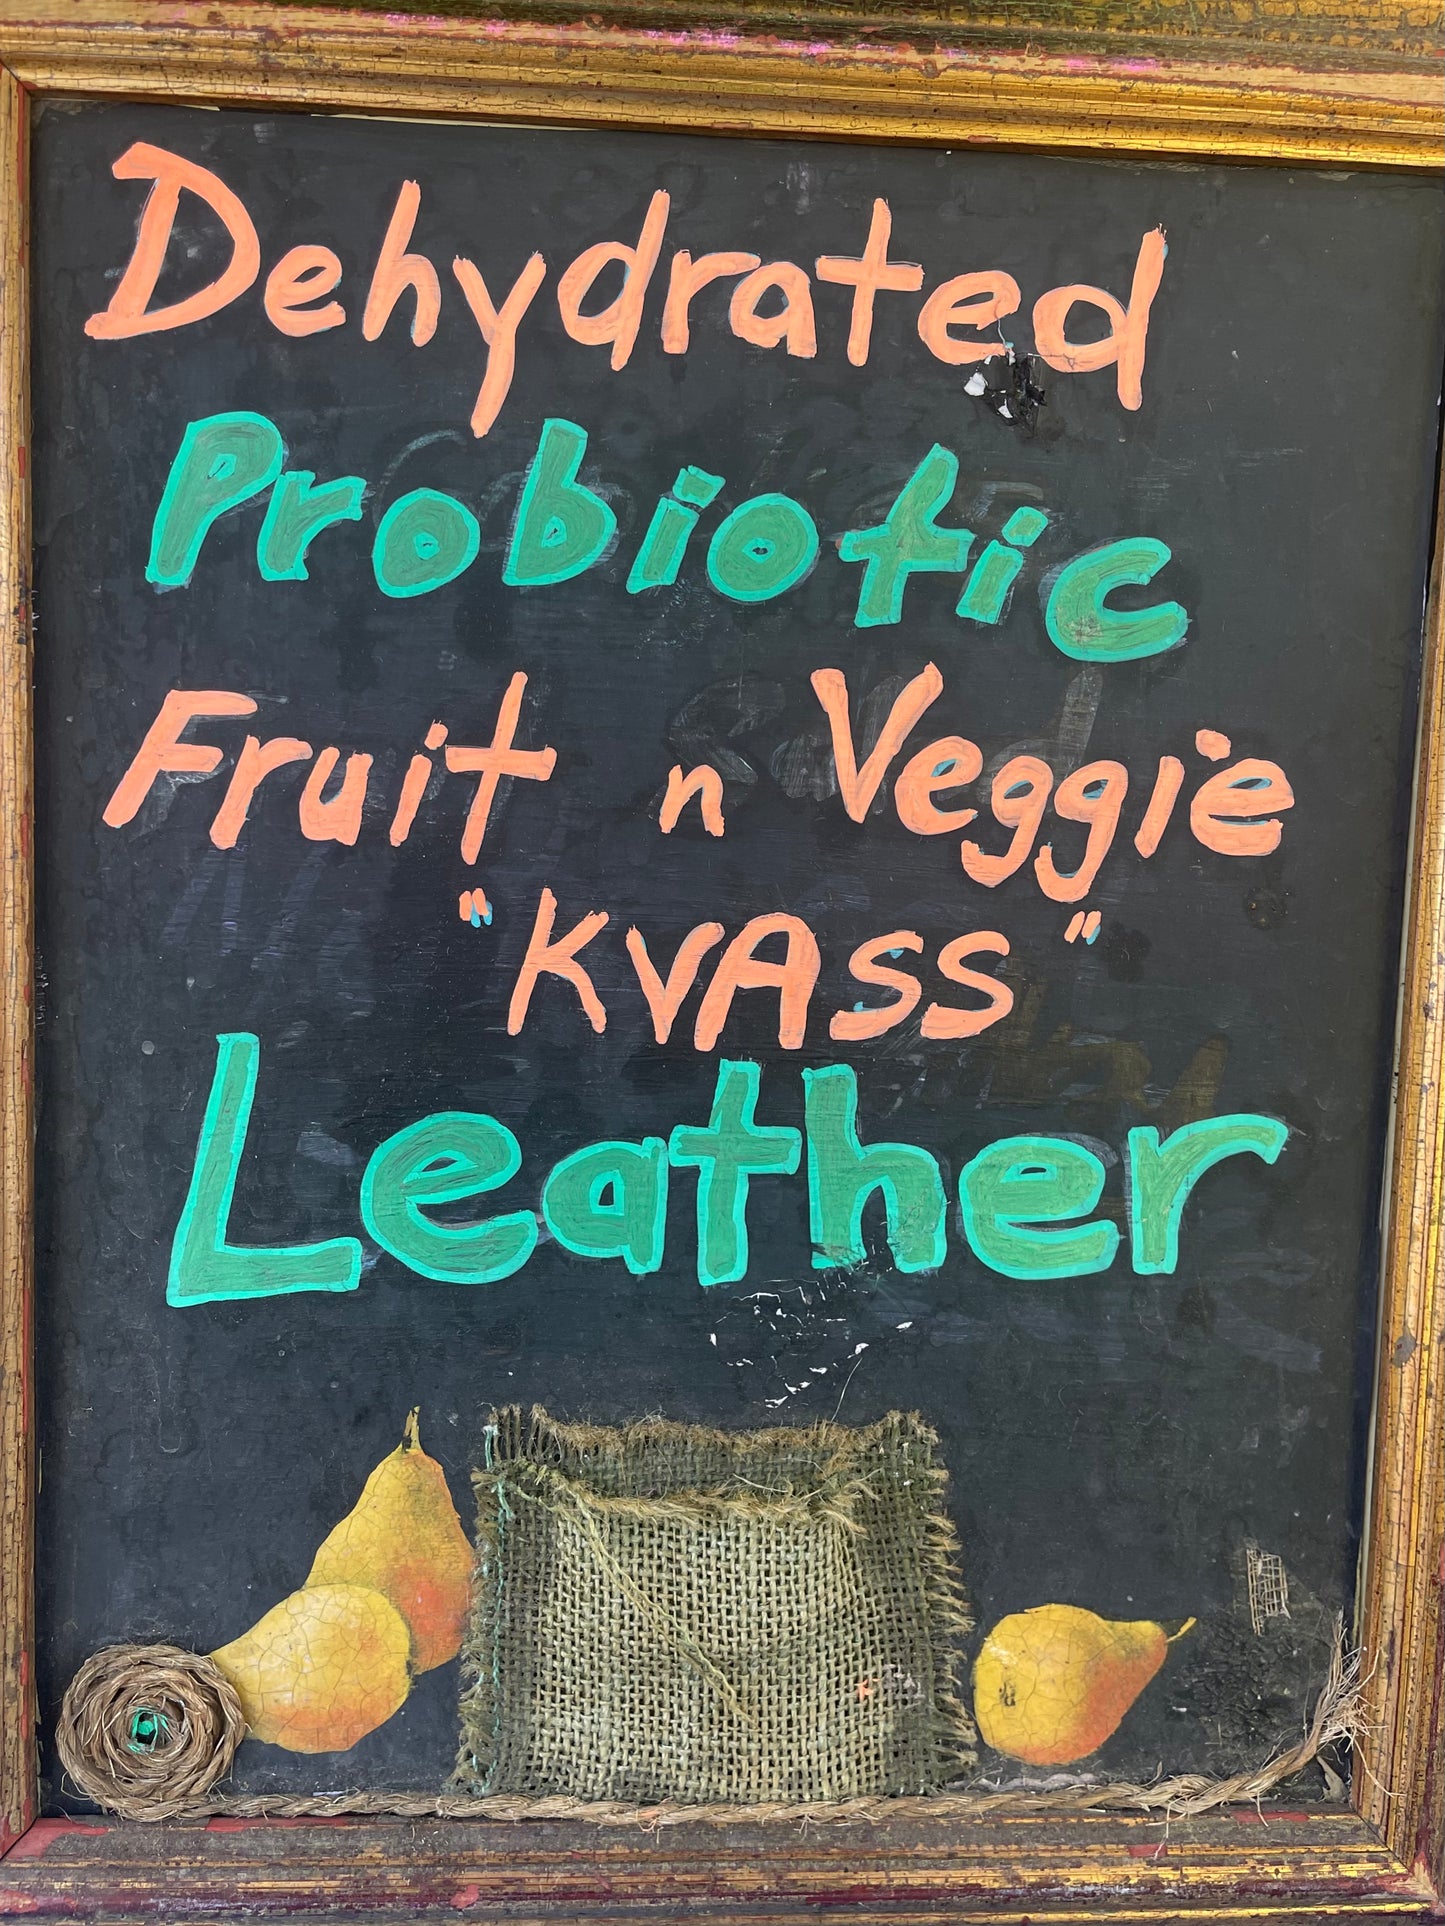 Dehydrated
Probiotic
Fruit n Veggie
"KVASS"
Leather